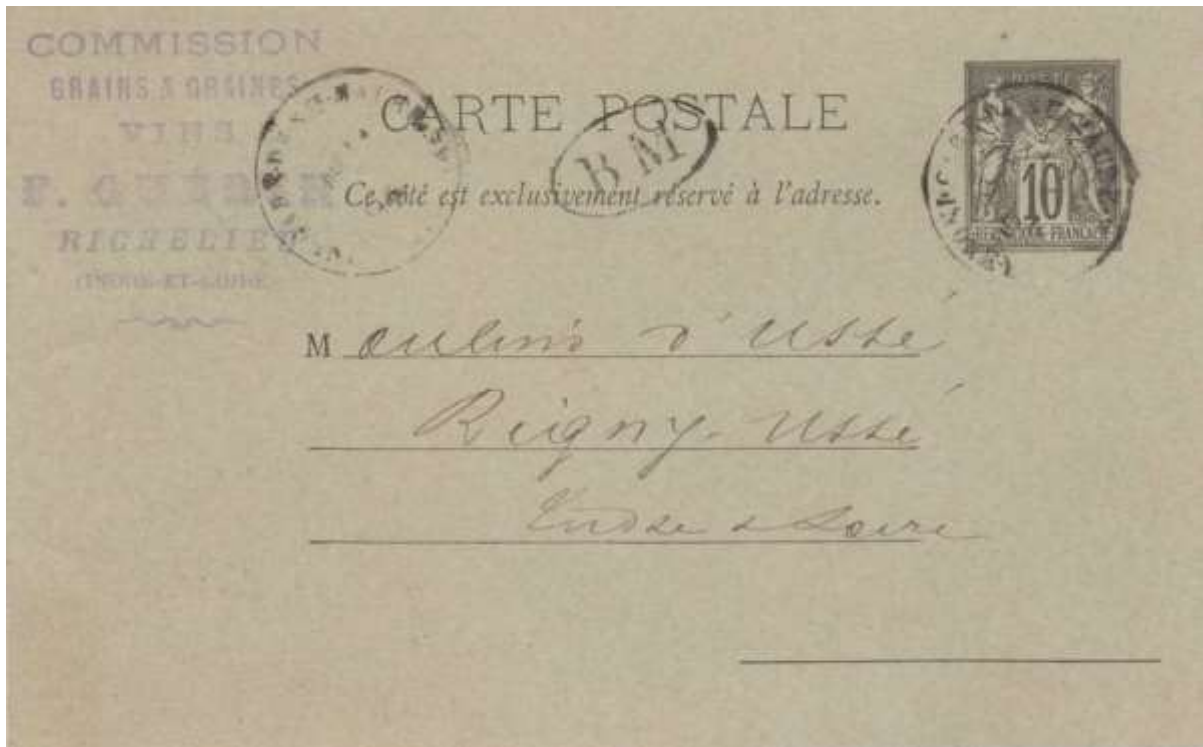 COMMISSION
GRAINS & GRAINES
VINS
F.
RICHELIEU
(INDRE-ET-LOIRE)
CARTE POSTALE
BM
Ce côté est exclusivement réservé à l'adresse.
POSTE
10
REPUBLIQUE FRANCAISE
Moulins d'Ussé
Rigny-Ussé
Indre & Loire